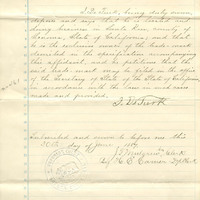 being duly sworn,
deposes and says that he is located and
doing business in Santa Rosa, county of
Sonoma, State of California, and that
he is the exclusive owner of the trade-mark
described in the specification accompanying
this affidavit, and he petitions that the
said trade-mark may be filed in the office
of the Secretary of the State of California
in accordance with the law in such case
made and provided.
Subscribed and sworn to before me this
30th day of June
Clerk
By